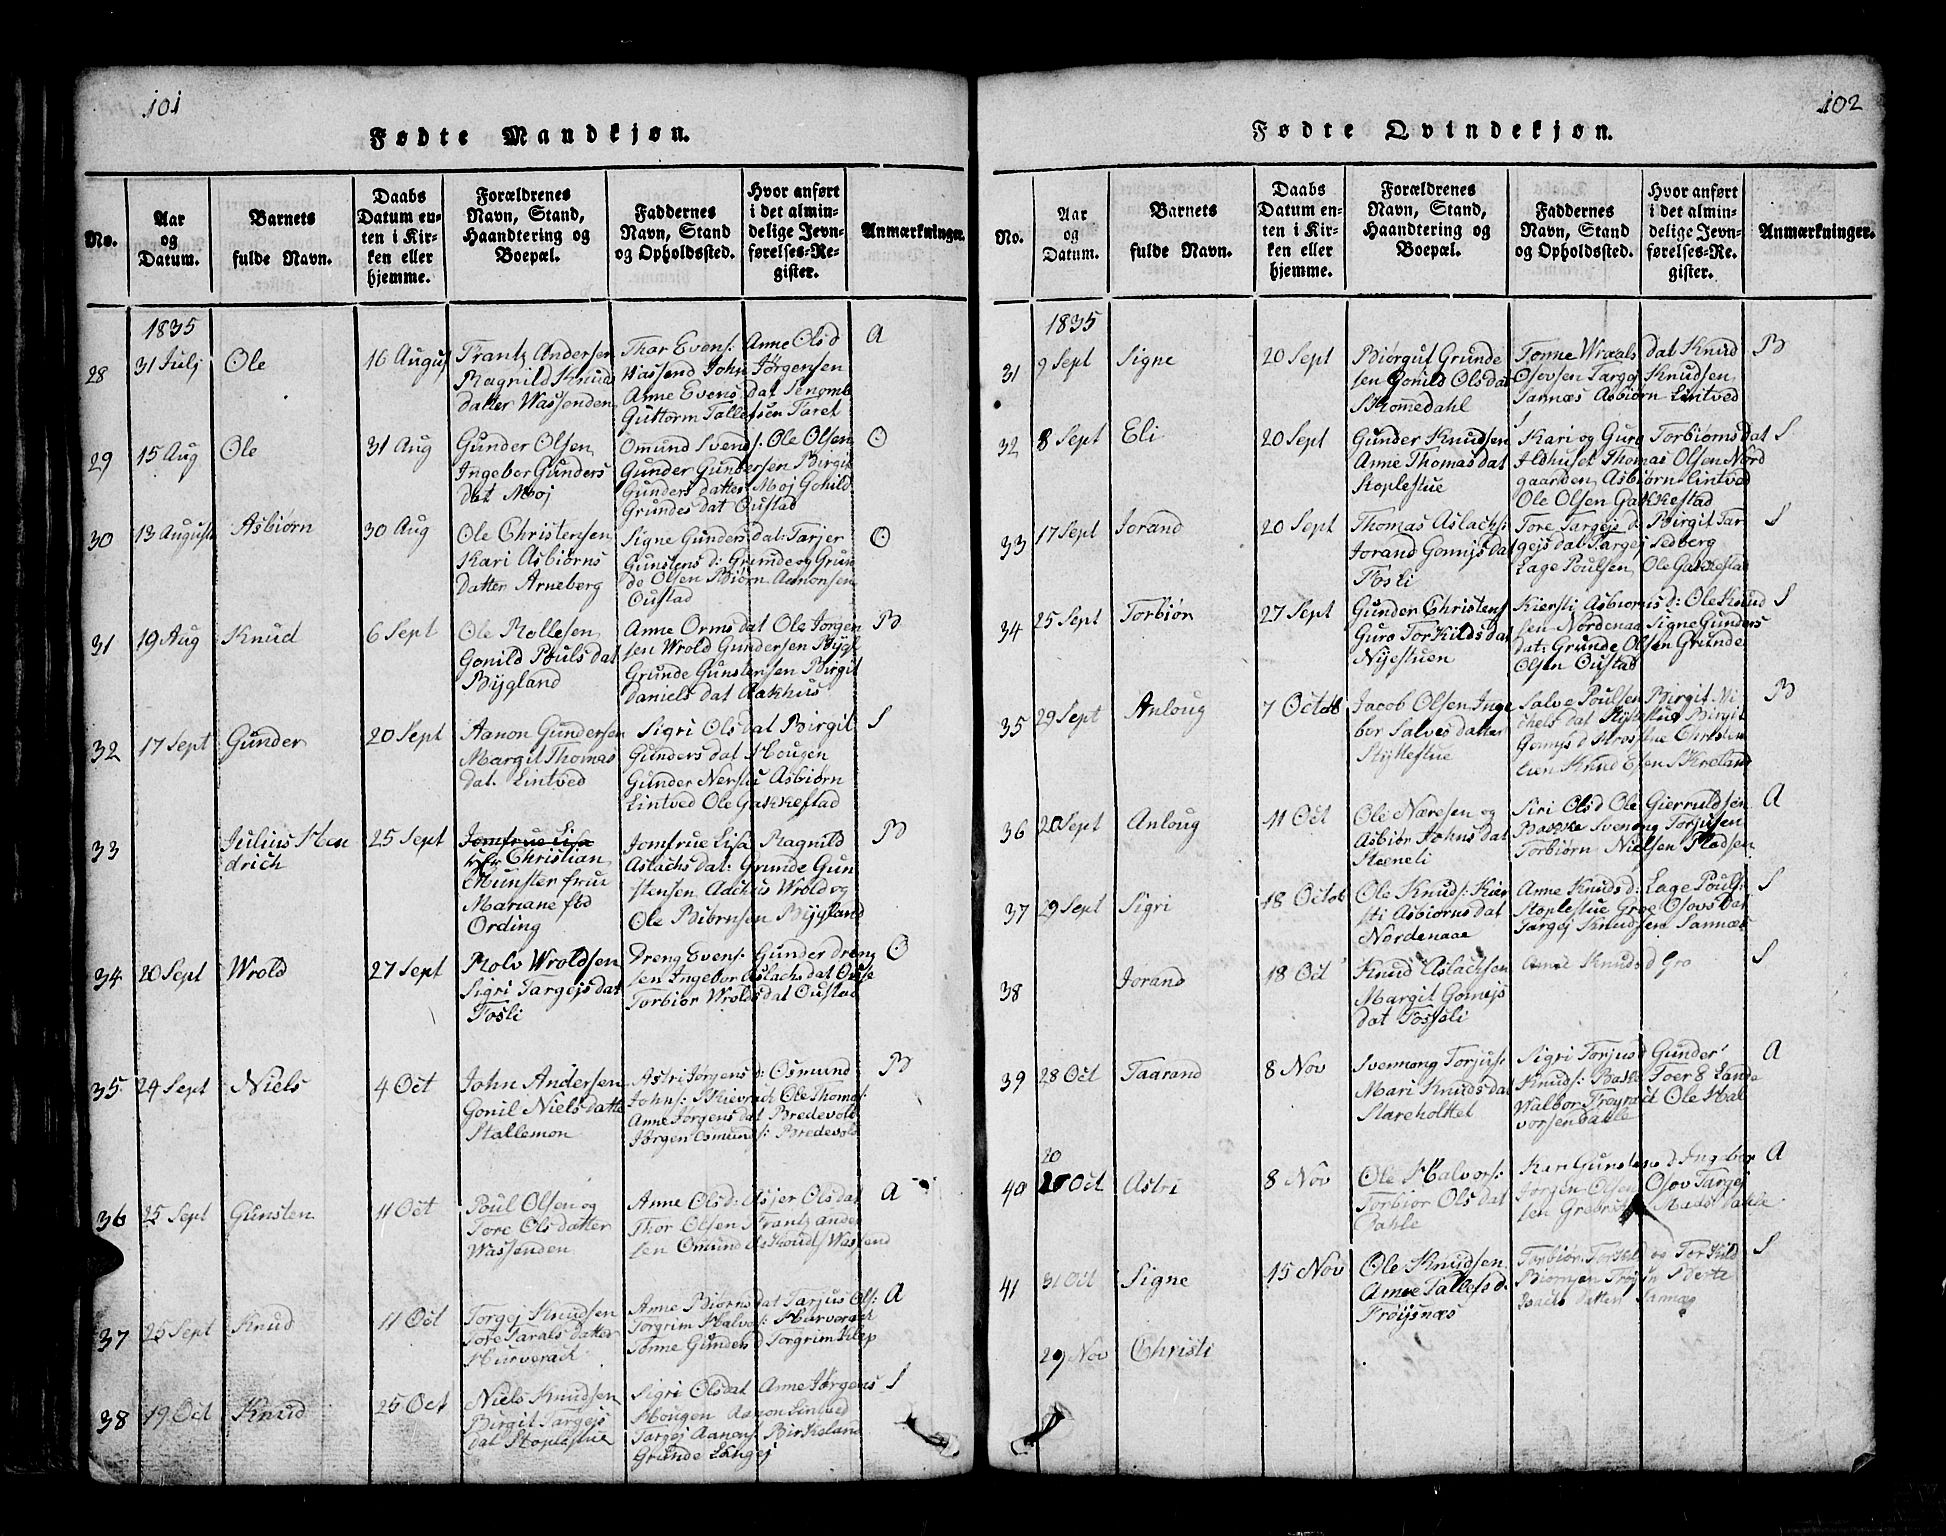 101
Fødte Mandkjøn.
No.
Aar
og
Datum.
Barnets
fulde Navn.
Daabs
Datum en-
ten i Kir-
ken eller
hjemme.
Forældrenes
Navn, Stand,
Haandtering og
Boepæl.
Faddernes
Navn, Stand
og Opholdssted.
Hvor anført
i det almin-
delige Jevn-
førelses-Re-
gister.
Anmærkninger.
1835
28 31 Julj Ole 16 August
Frantz Andersen
Ragnild Knuds
datter Wassenden
Thor Evens: Anne Ols d
Wassend John Jørgensen
Anne Evens dat
Guttorm Tallefsen Taret
A
29 15 Aug Ole 31 Aug
Gunder Olsen
Ingebor Gunders
dat Moj
Omund Svends: Ole Olsen
Gunder Gundersen Birgit
Gunders datter Moj Gonild
Grundes dat Oustad
O
30 13 August Asbiørn 30 Aug
Ole Christensen
Kari Asbiørns
datter Arneberg
Signe Gunders dat: Tarjer
Gunstens d: Grunde og Grun
de Olsen Biørn Aanonsen
Oustad
O
31 19 Aug Knud 6 Sept
Ole Rollesen
Gonild Pouls dat
Bygland
Anne Orms dat Ole Jorgen
sen Wrold Gundersen Bygl
Grunde Gunstensen Birgit
Daniels dat Aakhus
B
32 17 Sept Gunder 20 Sept
Aanon Gundersen
Margit Thomas
dat. Lintved
Sigri Ols dat Birgit
Gunders dat Hougen
Gunder Nerstu Asbiørn
Lintved Ole Gakkestad
S
33 Julius Hen
drich
25 Sept
Jomfrue Lisa
Christian
Münster frue
Mariane fød
Ording
Jomfrue Lisa Ragnild
Aslachs dat: Grunde Gun
stensen Aachus Wrold og
Ole Biørnsen Bygland
B
34 20 Sept Wrold 27 Sept
Rolv Wroldsen
Sigri Targejs dat
Fosli
Dreng Evens: Gunder Dreng
sen Ingebor Aslachs dat Ouse
Torbiør Wrolds dat Oustad
O
35 24 Sept Niels 4 Oct
John Andersen
Gonil Niels datte
Stallemon
Astri Jørgens d: Osmund
Johns: Skievrack Ole Thoms:
Anne Jorgens dat Bredevold
Jørgen Osmunds: Bredevold
B
36 25 Sept Gunsten 11 Oct
Poul Olsen og
Tore Ols datter
Wassenden
Anne Ols d: Asjer Ols dat
Thor Olsen Frantz ander
sen Omund Knuds Wassend
A
37 25 Sept Knud 11 Oct
Torgej Knudsen
Tore Tarals datter
Hurverack
Anne Biørns dat Tarjus Ols:
Torgrim Halvos: Hurverack
Tonne Gunders d Torgrim Klep
A
38 19 Oct Knud 25 Oct
Niels Knudsen
Birgit Targejs
dat Stoplestue
Sigri Olsdat Anne Jørgens
Hougen Aanon Lintved
Targej Aanons: Birkeland
Grunde Langej
S
102
Fødte Qvindekjøn.
No.
Aar
og
Datum.
Barnets
fulde Navn.
Daabs
Datum en-
ten i Kir-
ken eller
hjemme.
Forældrenes
Navn, Stand,
Haandtering og
Boepæl.
Faddernes
Navn, Stand
og Opholdssted.
Hvor anført
i det almin-
delige Jevn-
førelses-Re-
gister.
Anmærkninger.
1835
31 9 Sept Signe 20 Sept
Biørgul Grunde
sen Gonild Olsdat
Skomedahl
Tonne Wraals dat Knud
Osovsen Targej Knudsen
Sannæs Asbiørn Lintved
B
32 8 Sept Eli 20 Sept
Gunder Knudsen
Anne Thomas dat
Stoplestue
Kari og Guro Torbiørns dat
Ildhuset Thomas Olsen Nord
gaarden Asbiørn Lintved
Ole Olsen Gakkestad
S
33 17 Sept Jorand 20 Sept
Thomas Aslachs:
Jorand Gomejs dat
Fosli
Tore Targejs d: Birgit Tar
gejs dat Targej Sedberg
Lage Poulsen Ole Gakkestad
S
34 25 Sept Torbiør 27 Sept
Gunder Christens
Guro Torkilds dat
Nijestuen
Kiersti Asbiørns d: Ole Knud
sen Nordenaa Signe Gunders
dat: Grunde Olsen Grunde
Olsen Oustad
S
35 29 Sept Anloug 7 Octob
Jacob Olsen Inge
bor Salves datter
Stykkestue
Salve Poulsen Birgit Mi
chels dat Birgit
Gomejs d
Knud Skreland
B
36 20 Sept Anloug 11 Oct
Ole Næresen og
Asbiør Johns dat
Steeneli
Siri Ols d Ole Gierruldsen
Bakke Svenong Torjusen
Torbiørn Nielsen Pladsen
A
37 29 Sept Sigri 18 Octob
Ole Knuds: Kier
sti Asbiørns dat
Nordenaae
Anne Knuds d: Lage Pouls:
Stoplestue Groe Osovs dat
Targej Knudsen Sannæs
S
38 Jorand 18 Oct
Knud Aslachsen
Margit Gomejs
dat Fossli
Anne Knuds d Gro
S
39 28 Oct Taarand 8 Nov
Svennong Torjus:
Mari Knuds dat
Stareholttet
Sigri Torjus d Gunder
Knuds: Bakke Toer E Lande
Walbor Frøyrack Ole Hal
vorsen Dahle
A
40 20 Oct Astri 8 Nov
Ole Halvors:
Torbior Ols dat
Dahle
Kari Gunstens d: Ingebor
Jorgen Olsen Osov Targej
sen Mads Dahle
A
41 31 Oct Signe 15 Nov
Ole Knudsen
Anne Tallefs d.
Frøijsnæs
Torbiør Torkel og Torkild
Biornsen Berte
datter Sannæs
S
29 Nov Christi